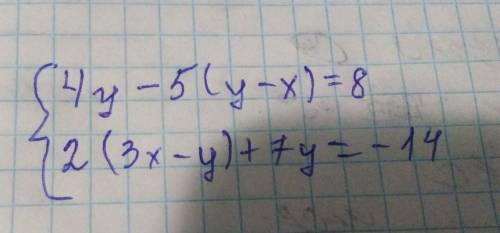 4y - 5(y - x) = 8
2(3x - y) + 7y = -14